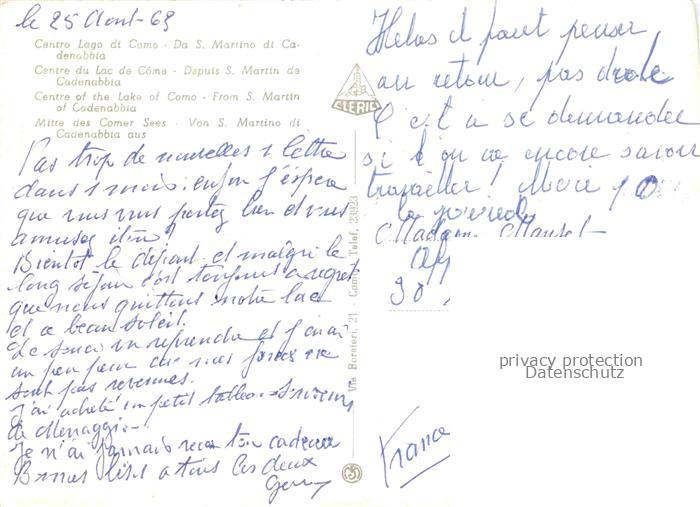 le 25 Aout - 63
Centro Lago di Como - Da S. Martino di Ca-
denabbia
Centre du Lac de Côme - Depuis S. Martin de
Cadenabbia
Centre of the Lake of Como - From S. Martin
of Cadenabbia
Mitte des Comer Sees - Von S. Martino di
Cadenabbia aus
CLERICI
Pas trop de nouvelles 1 lettre
dans 1 mois. enfin j'espère
que vous vous portez bien et vous
amusez
Bientôt le départ et malgré le
long séjour c'est toujours a regret
que nous quittons notre lac
et ce beau soleil.
Le souci va reprendre et j'en ai
un peu peur car mes forces ne
sont pas revenues.
J'ai acheté un petit tableau souvenir
de Menaggio -
Je n'ai jamais reçu ton cadeau
Bonnes bises a tous les deux
Via Borsieri, 21 - Como - Telef. 23023
Helas il faut penser
au retour, pas drole
C'est a se demander
si l'on va encore savoir
travailler!
Madame
30
France
privacy protection
Datenschutz